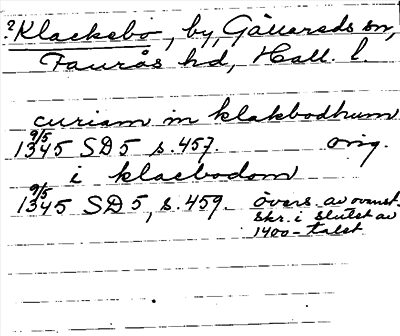 ? Klackebo, by, Gällareds sn,
Faurås hd, Hall. l.
curiam in klakbodhum
9/5
1345 SD 5 s. 457. orig.
i klacbodom
9/5
1345 SD 5, s. 459. övers. av ovanst.
skr. i slutet av
1400-talet